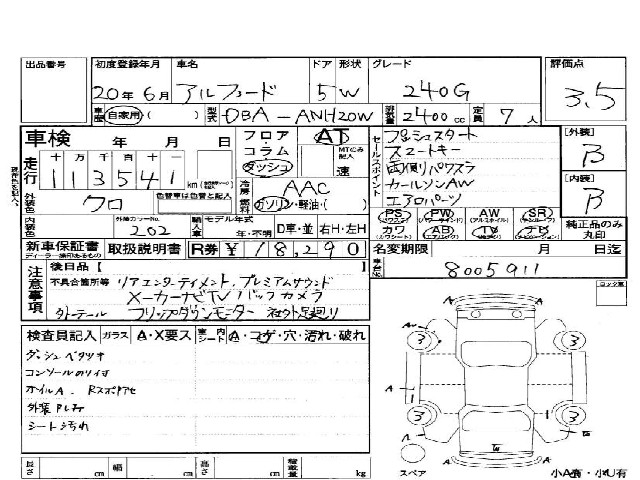 出品番号 初度登録年月 車名 ドア 形状 グレード 評価点
20年6月 アルファード 5 W 240G 3.5
車歴 自家用・( ) 型式 DBA-ANH20W 排気量 2400cc 定員 7人
車検 年 月 日 フロア・コラム・ダッシュ AT MTのみ記入 速
走行 十 万 千 百 十 一
113541 km
冷房 AAC
外装色 クロ 色替車は元色と記入 燃料 ガソリン・軽油・( )
内装色 外装カラーNo. 202 輸入車 モデル年式 年・不明 D車・並 右H・左H
セールスポイント
プッシュスタート
スマートキー
両側パワスラ
カールソンAW
エアロパーツ
[外装] B
[内装] B
PS PW AW SR
カワ AB TV ナビ
純正品のみ丸印
新車保証書 取扱説明書 R券 ¥18,290
ディーラー捺印あるもの
名変期限 月 日迄
車台No. 8005911
注意事項 後日品【 】
不具合箇所等 リアエンターテイメント、プレミアムサウンド
メーカーナビTV バックカメラ
フリップダウンモニター 社外足廻り
検査員記入 ガラス A・X要ス 室内シート A・コゲ・穴・汚れ・破れ
コンソールのリイオ
オイルA.
シート汚れ
長さ cm 幅 cm 高さ cm 積載量 kg
ロック室
A
A
3 3
A
A
3 3
W
A
スペア
小A有・小U有